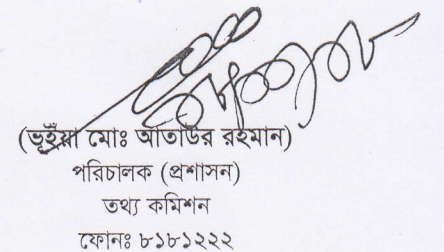 (ভূইঁয়া মোঃ আতাউর রহমান)
পরিচালক (প্রশাসন)
তথ্য কমিশন
ফোনঃ ৮১৮১২২২